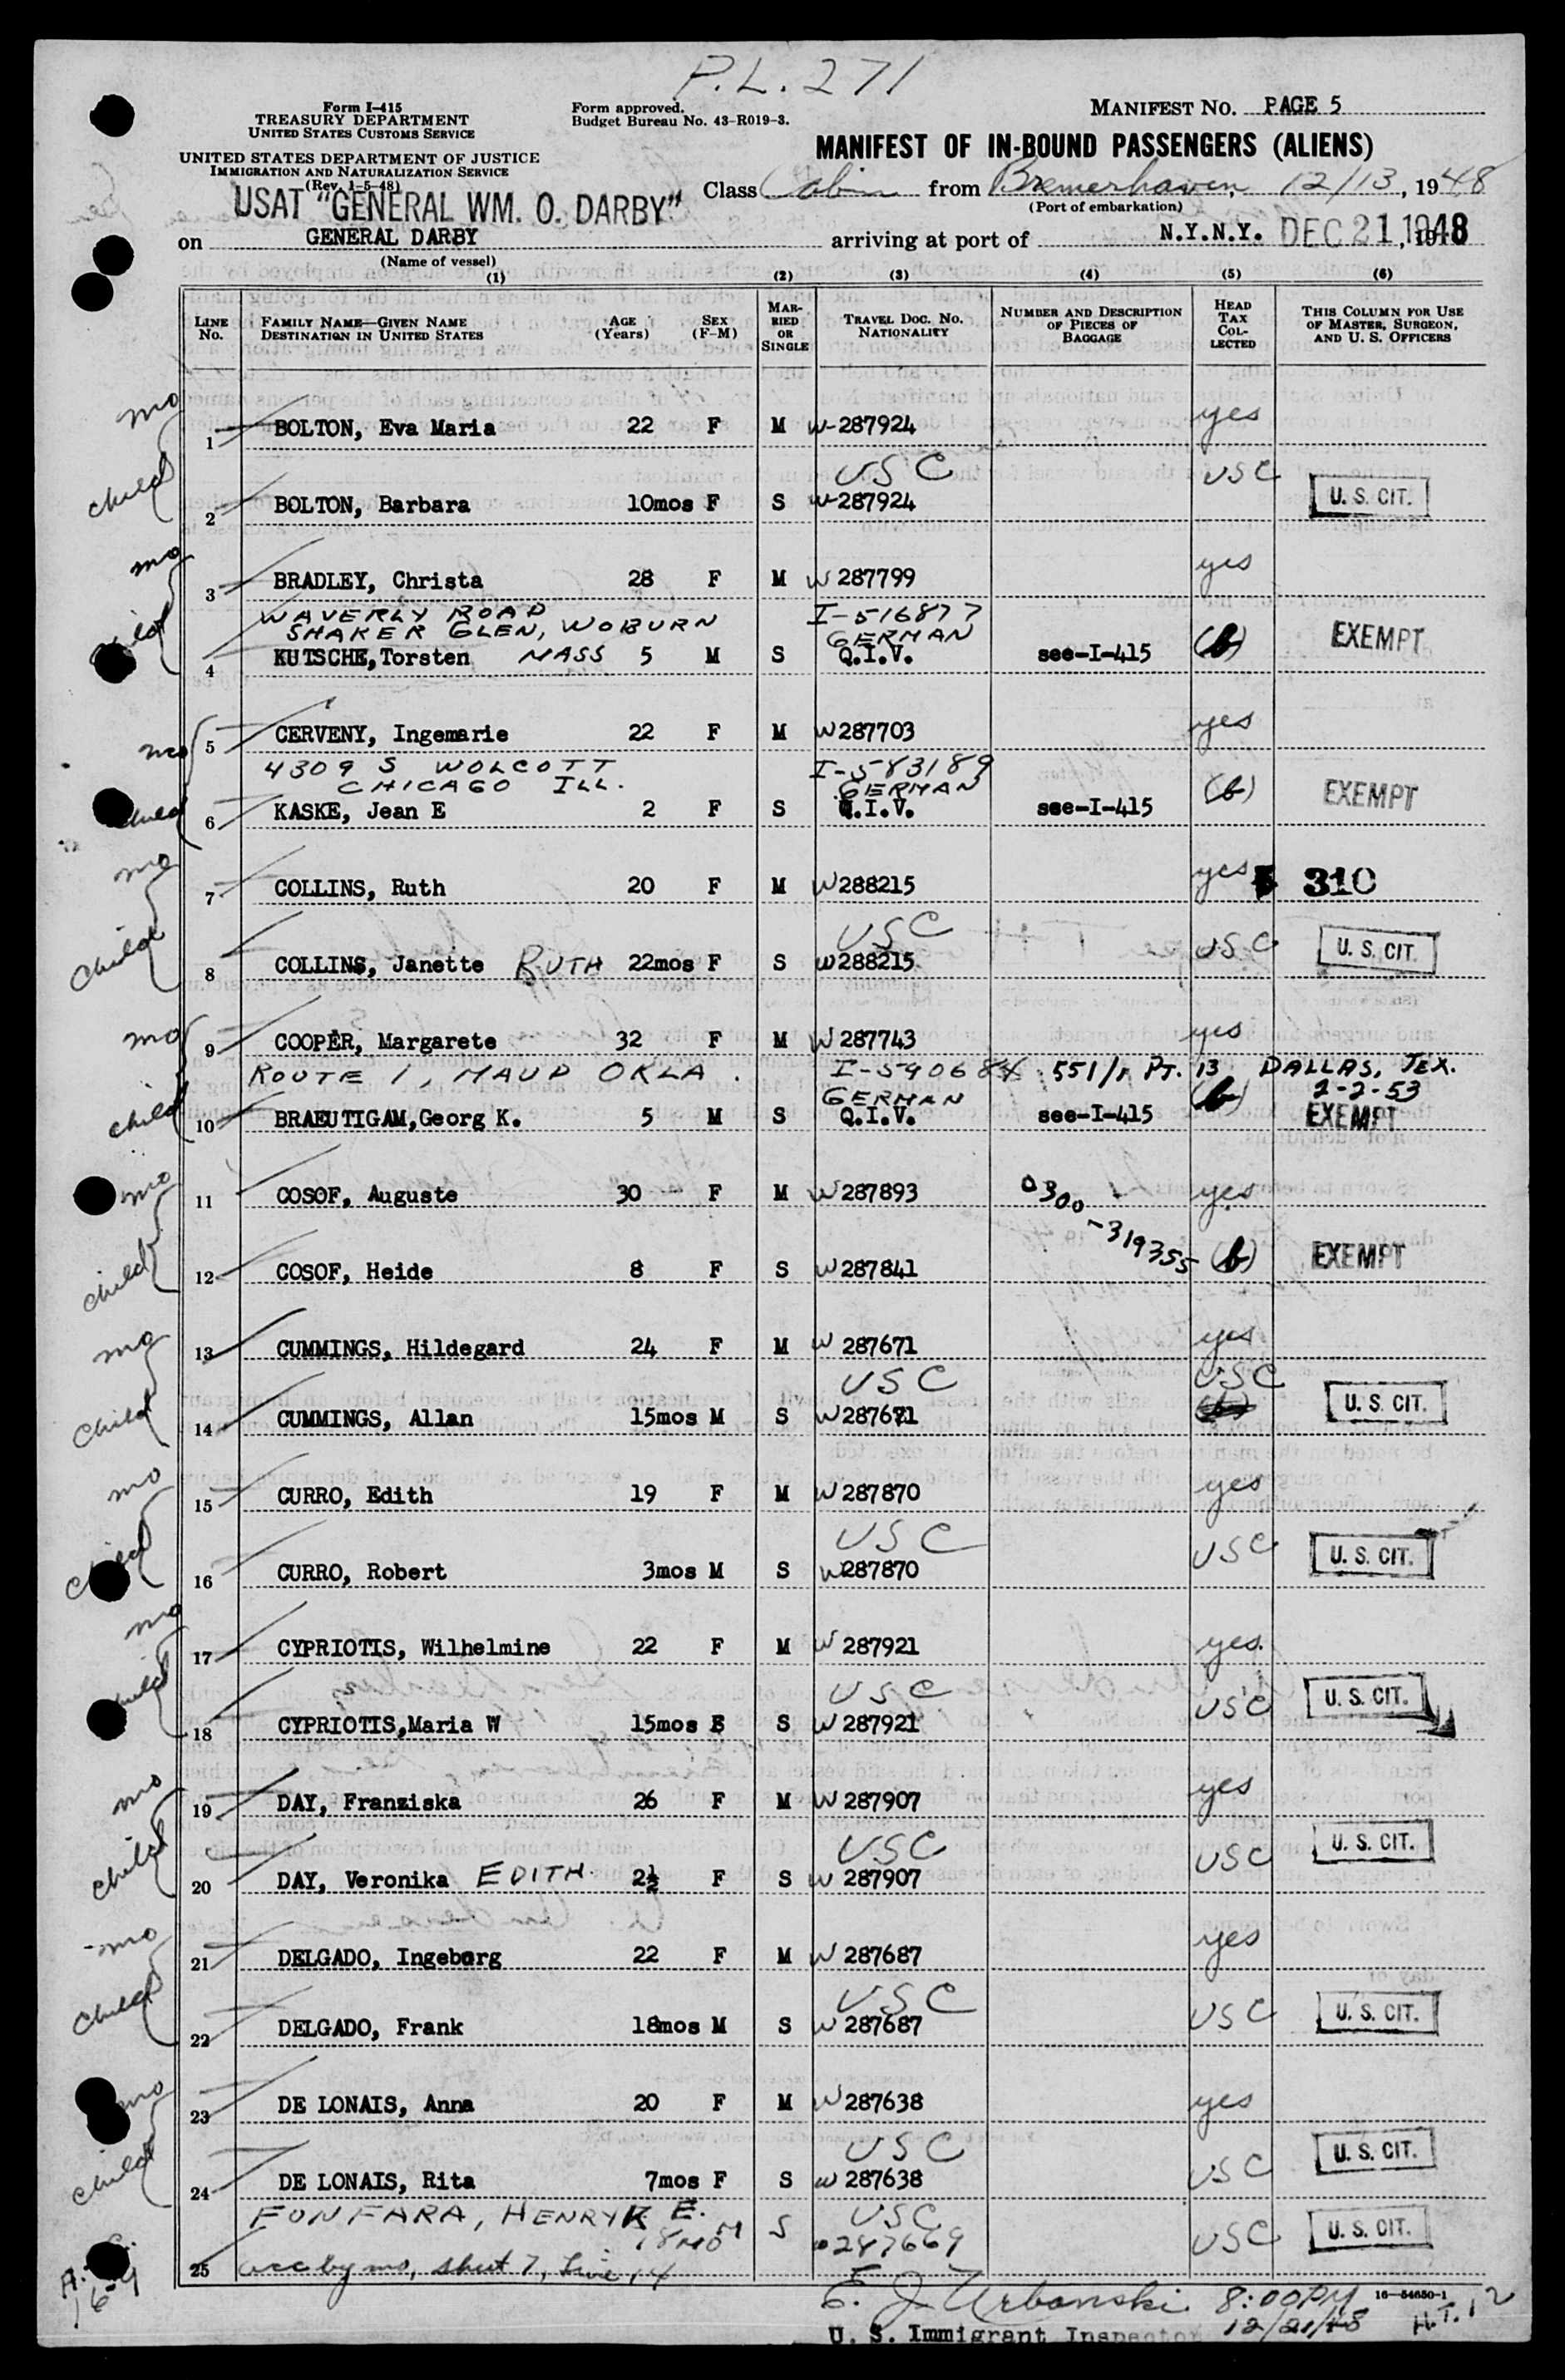 P.L. 271
Form I-415
TREASURY DEPARTMENT
UNITED STATES CUSTOMS SERVICE
Form approved.
Budget Bureau No. 43-R019-3.
MANIFEST No. PAGE 5
UNITED STATES DEPARTMENT OF JUSTICE
IMMIGRATION AND NATURALIZATION SERVICE
(Rev. 1-5-48)
MANIFEST OF IN-BOUND PASSENGERS (ALIENS)
USAT "GENERAL WM. O. DARBY"
Class Cabin from Bremerhaven, 12/13, 1948
(Port of embarkation)
on GENERAL DARBY arriving at port of N.Y.N.Y. DEC 21 1948
(Name of vessel)
(1) (2) (3) (4) (5) (6)
LINE No. FAMILY NAME—GIVEN NAME DESTINATION IN UNITED STATES AGE (Years) SEX (F-M) MARRIED OR SINGLE TRAVEL DOC. NO. NATIONALITY NUMBER AND DESCRIPTION OF PIECES OF BAGGAGE HEAD TAX COLLECTED THIS COLUMN FOR USE OF MASTER, SURGEON, AND U. S. OFFICERS
mo 1 BOLTON, Eva Maria 22 F M W-287924 yes
USC USC
child 2 BOLTON, Barbara 10mos F S W-287924 U. S. CIT.
mo 3 BRADLEY, Christa 28 F M W 287799 yes
WAVERLY ROAD I-516877
SHAKER GLEN, WOBURN GERMAN
child 4 KUTSCHE, Torsten MASS 5 M S Q.I.V. see-I-415 (b) EXEMPT
mo 5 CERVENY, Ingemarie 22 F M W287703 yes
4309 S WOLCOTT I-583189
CHICAGO ILL. GERMAN
child 6 KASKE, Jean E 2 F S Q.I.V. see-I-415 (b) EXEMPT
mo 7 COLLINS, Ruth 20 F M W288215 yes 310
USC
child 8 COLLINS, Janette RUTH 22mos F S W288215 USC U. S. CIT.
mo 9 COOPER, Margarete 32 F M W 287743 yes
ROUTE 1, MAUD OKLA. I-590684 551/r PT. 13 DALLAS, TEX.
GERMAN 2-2-53
child 10 BRAEUTIGAM, Georg K. 5 M S Q.I.V. see-I-415 (b) EXEMPT
mo 11 COSOF, Auguste 30 F M W 287893 0300 yes
-319355
child 12 COSOF, Heide 8 F S W 287841 (b) EXEMPT
mo 13 CUMMINGS, Hildegard 24 F M W 287671 yes
USC USC
child 14 CUMMINGS, Allan 15mos M S W287671 U. S. CIT.
mo 15 CURRO, Edith 19 F M W 287870 yes
USC
child 16 CURRO, Robert 3mos M S W287870 USC U. S. CIT.
mo 17 CYPRIOTIS, Wilhelmine 22 F M W 287921 yes.
USC
child 18 CYPRIOTIS, Maria W 15mos S W 287921 USC U. S. CIT.
mo 19 DAY, Franziska 26 F M W 287907 yes
USC
child 20 DAY, Veronika EDITH 2½ F S W 287907 USC U. S. CIT.
mo 21 DELGADO, Ingeborg 22 F M W 287687 yes
USC
child 22 DELGADO, Frank 18mos M S W 287687 USC U. S. CIT.
mo 23 DE LONAIS, Anna 20 F M W 287638 yes
USC
child 24 DE LONAIS, Rita 7mos F S W 287638 USC U. S. CIT.
FONFARA, HENRYK E. 18 MO M S USC USC U. S. CIT.
25 acc by mo, sheet 7, Line 14
E. J. Urbanski 8:00PM 16-54650-1
U. S. Immigrant Inspector 12/21/48 H.T. 12